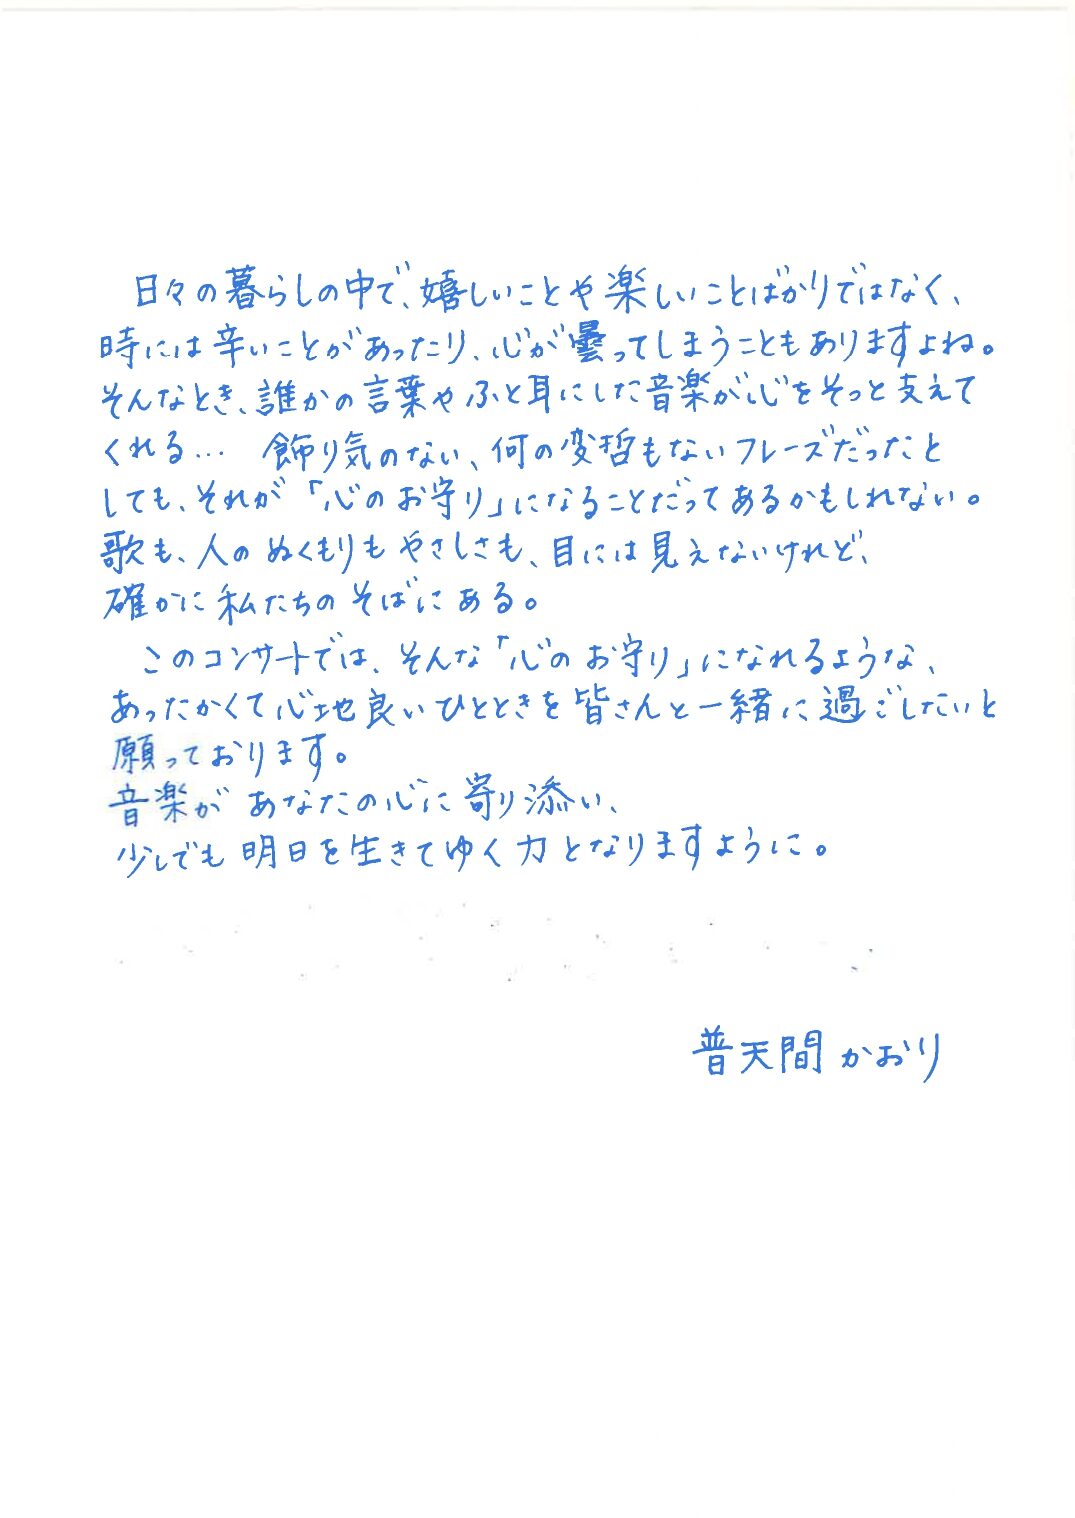 日々の暮らしの中で、嬉しいことや楽しいことばかりではなく、
時には辛いことがあったり、心が曇ってしまうこともありますよね。
そんなとき、誰かの言葉やふと耳にした音楽が心をそっと支えて
くれる… 飾り気のない、何の変哲もないフレーズだったと
しても、それが「心のお守り」になることだってあるかもしれない。
歌も、人のぬくもりもやさしさも、目には見えないけれど、
確かに私たちのそばにある。
このコンサートでは、そんな「心のお守り」になれるような、
あったかくて心地良いひとときを皆さんと一緒に過ごしたいと
願っております。
音楽があなたの心に寄り添い、
少しでも明日を生きてゆく力となりますように。
普天間かおり